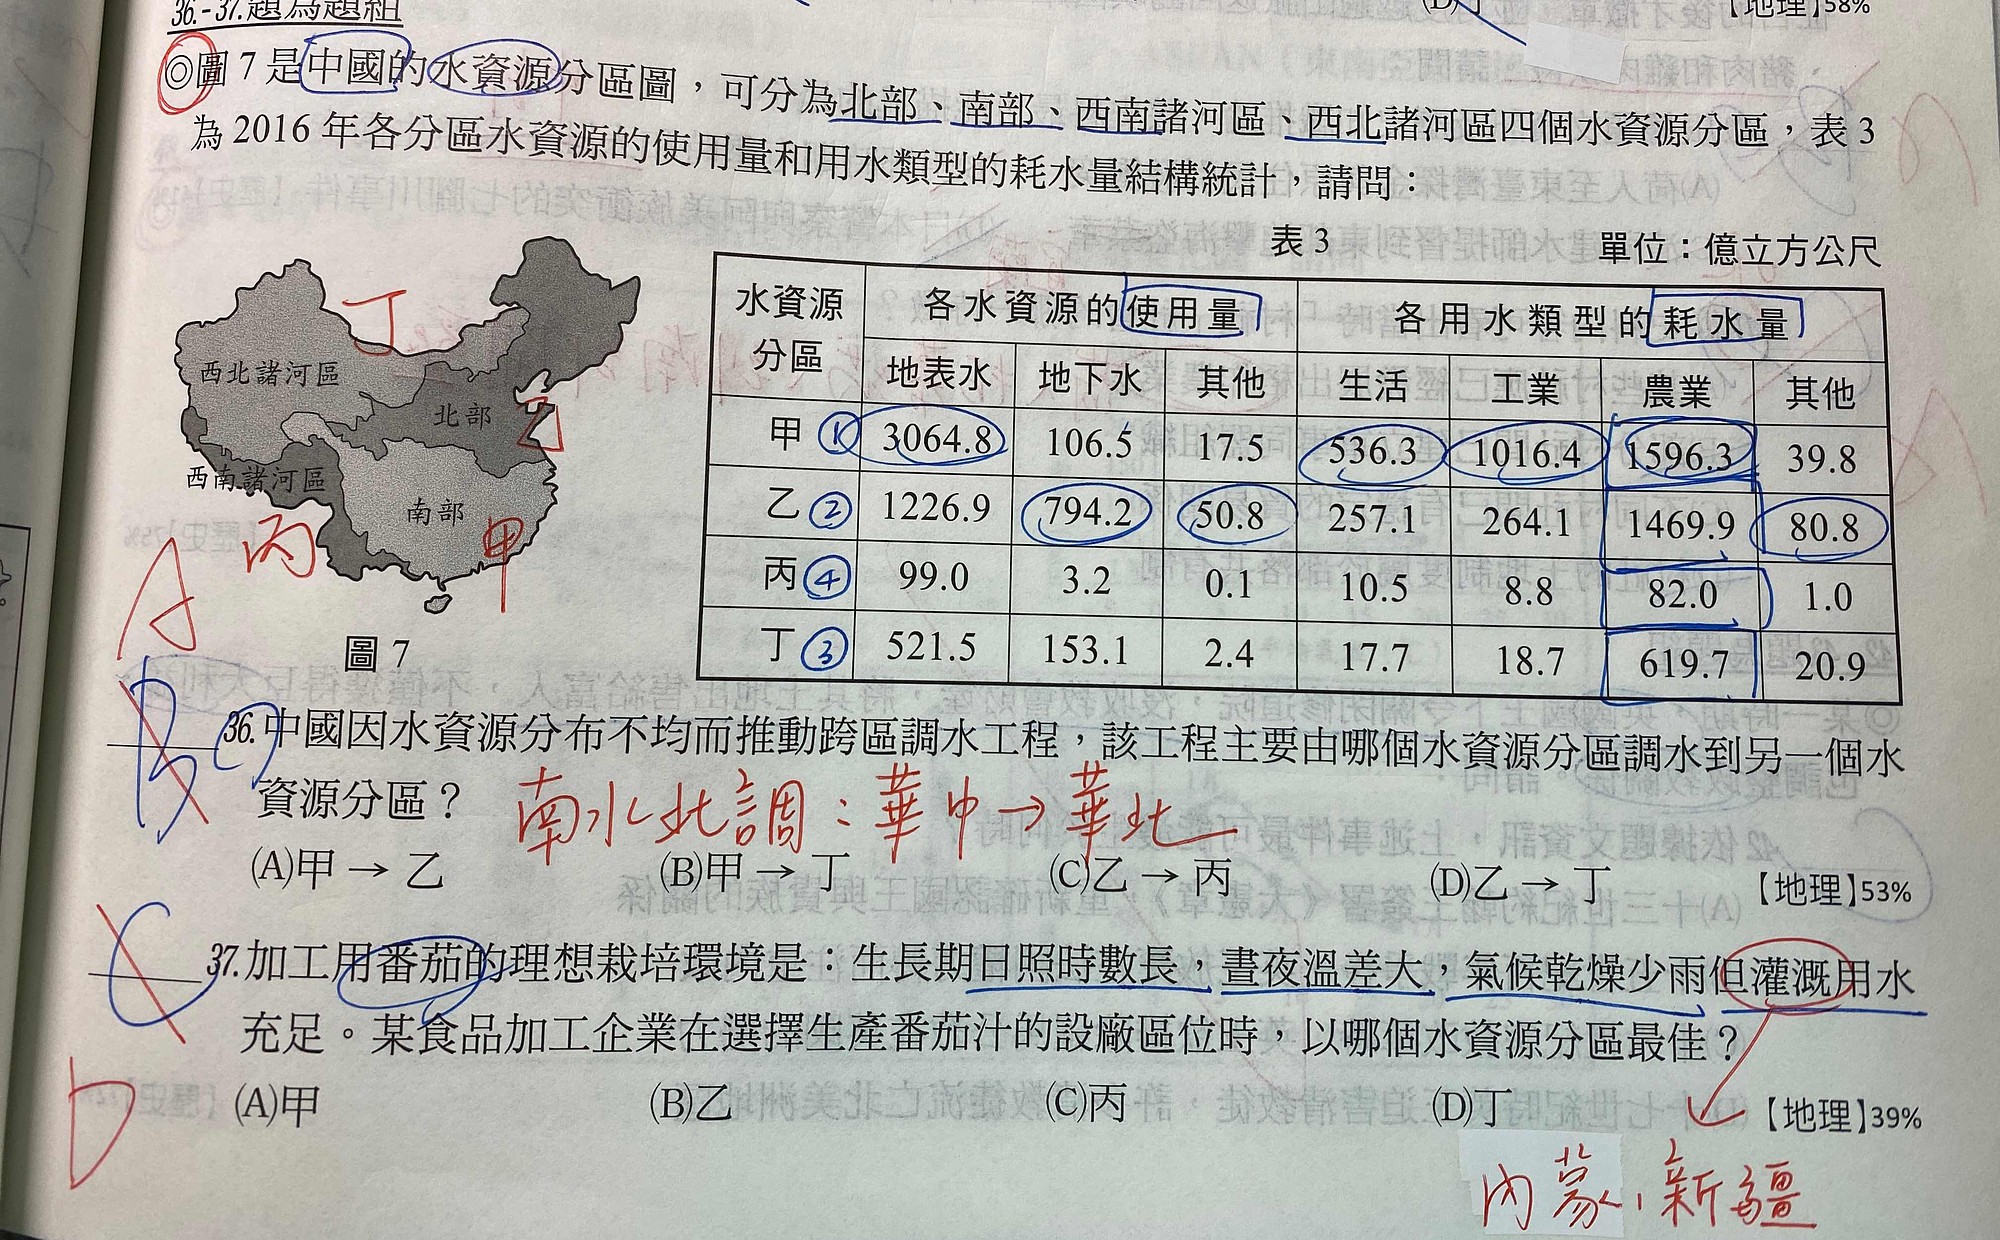 36.-37.題為題組
(D)丁
【地理】58%
◎圖7是中國的水資源分區圖，可分為北部、南部、西南諸河區、西北諸河區四個水資源分區，表3
為2016年各分區水資源的使用量和用水類型的耗水量結構統計，請問：
表3 單位：億立方公尺
水資源分區 各水資源的使用量 各用水類型的耗水量
地表水 地下水 其他 生活 工業 農業 其他
甲 ① 3064.8 106.5 17.5 536.3 1016.4 1596.3 39.8
乙 ② 1226.9 794.2 50.8 257.1 264.1 1469.9 80.8
丙 ④ 99.0 3.2 0.1 10.5 8.8 82.0 1.0
丁 ③ 521.5 153.1 2.4 17.7 18.7 619.7 20.9
丁
西北諸河區
北部
乙
西南諸河區
南部
甲
丙
圖7
A
B
36.中國因水資源分布不均而推動跨區調水工程，該工程主要由哪個水資源分區調水到另一個水
資源分區？
南水北調：華中→華北
(A)甲→乙 (B)甲→丁 (C)乙→丙 (D)乙→丁 【地理】53%
C
37.加工用番茄的理想栽培環境是：生長期日照時數長，晝夜溫差大，氣候乾燥少雨但灌溉用水
充足。某食品加工企業在選擇生產番茄汁的設廠區位時，以哪個水資源分區最佳？
D
(A)甲 (B)乙 (C)丙 (D)丁 【地理】39%
內蒙、新疆